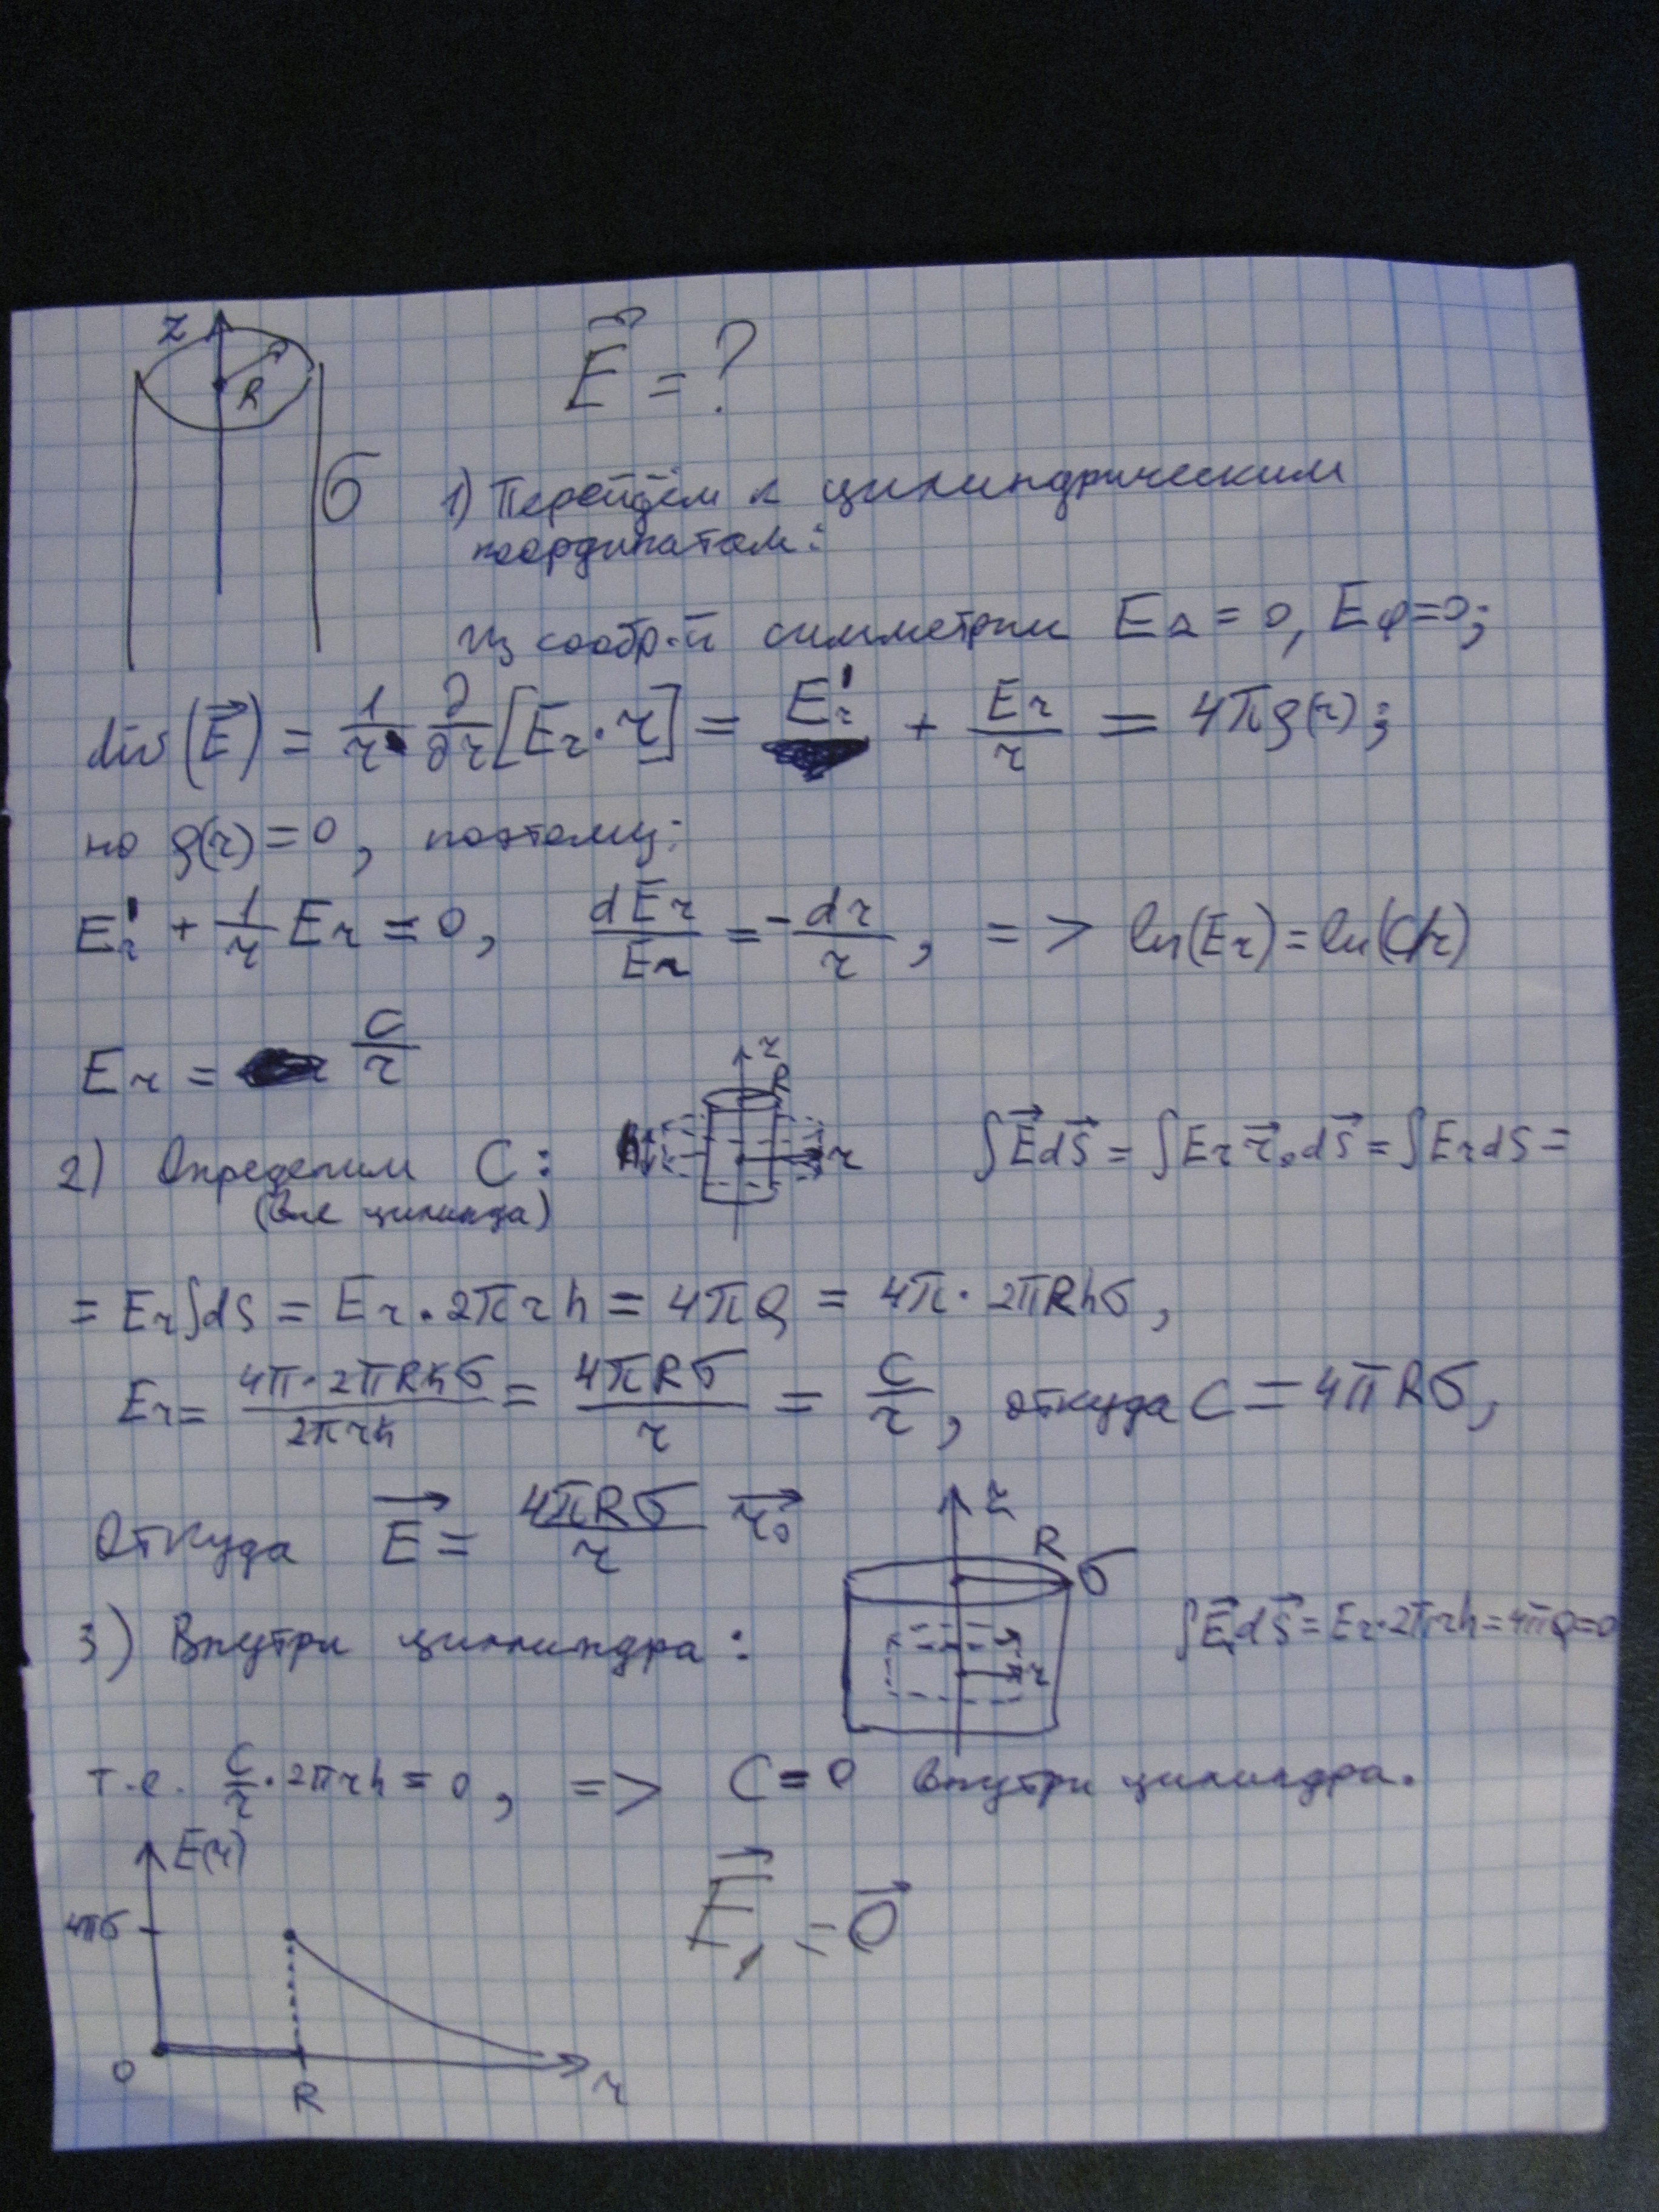 z
R
σ
E⃗ = ?
1) Перейдём к цилиндрическим
координатам:
из сообр-й симметрии E_z = 0, E_φ = 0;
div(E⃗) = 1/r ∂/∂r [E_r · r] = E'_r + E_r/r = 4πρ(r);
но ρ(r) = 0, поэтому:
E'_r + 1/r E_r = 0, dE_r/E_r = - dr/r, => ln(E_r) = ln(C/r)
E_r = C/r
2) Определим C:
(вне цилинда)
z
R
h
r
∫E⃗dS⃗ = ∫E_r r⃗₀ dS⃗ = ∫E_r dS =
= E_r∫dS = E_r · 2πrh = 4πQ = 4π · 2πRhσ,
E_r = 4π·2πRhσ/2πrh = 4πRσ/r = C/r, откуда C = 4πRσ,
Откуда E⃗ = 4πRσ/r r⃗₀
3) Внутри циллиндра:
z
R
σ
r
∫E⃗₁dS⃗ = E_r·2πrh = 4πQ = 0
т.е. C/r · 2πrh = 0, => C = 0 внутри цилиндра.
E(r)
4πσ
0
R
r
E⃗₁ = 0⃗